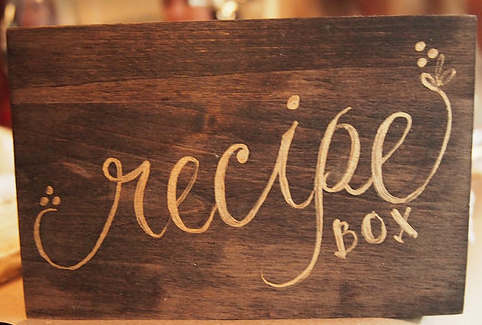 recipe
BOX